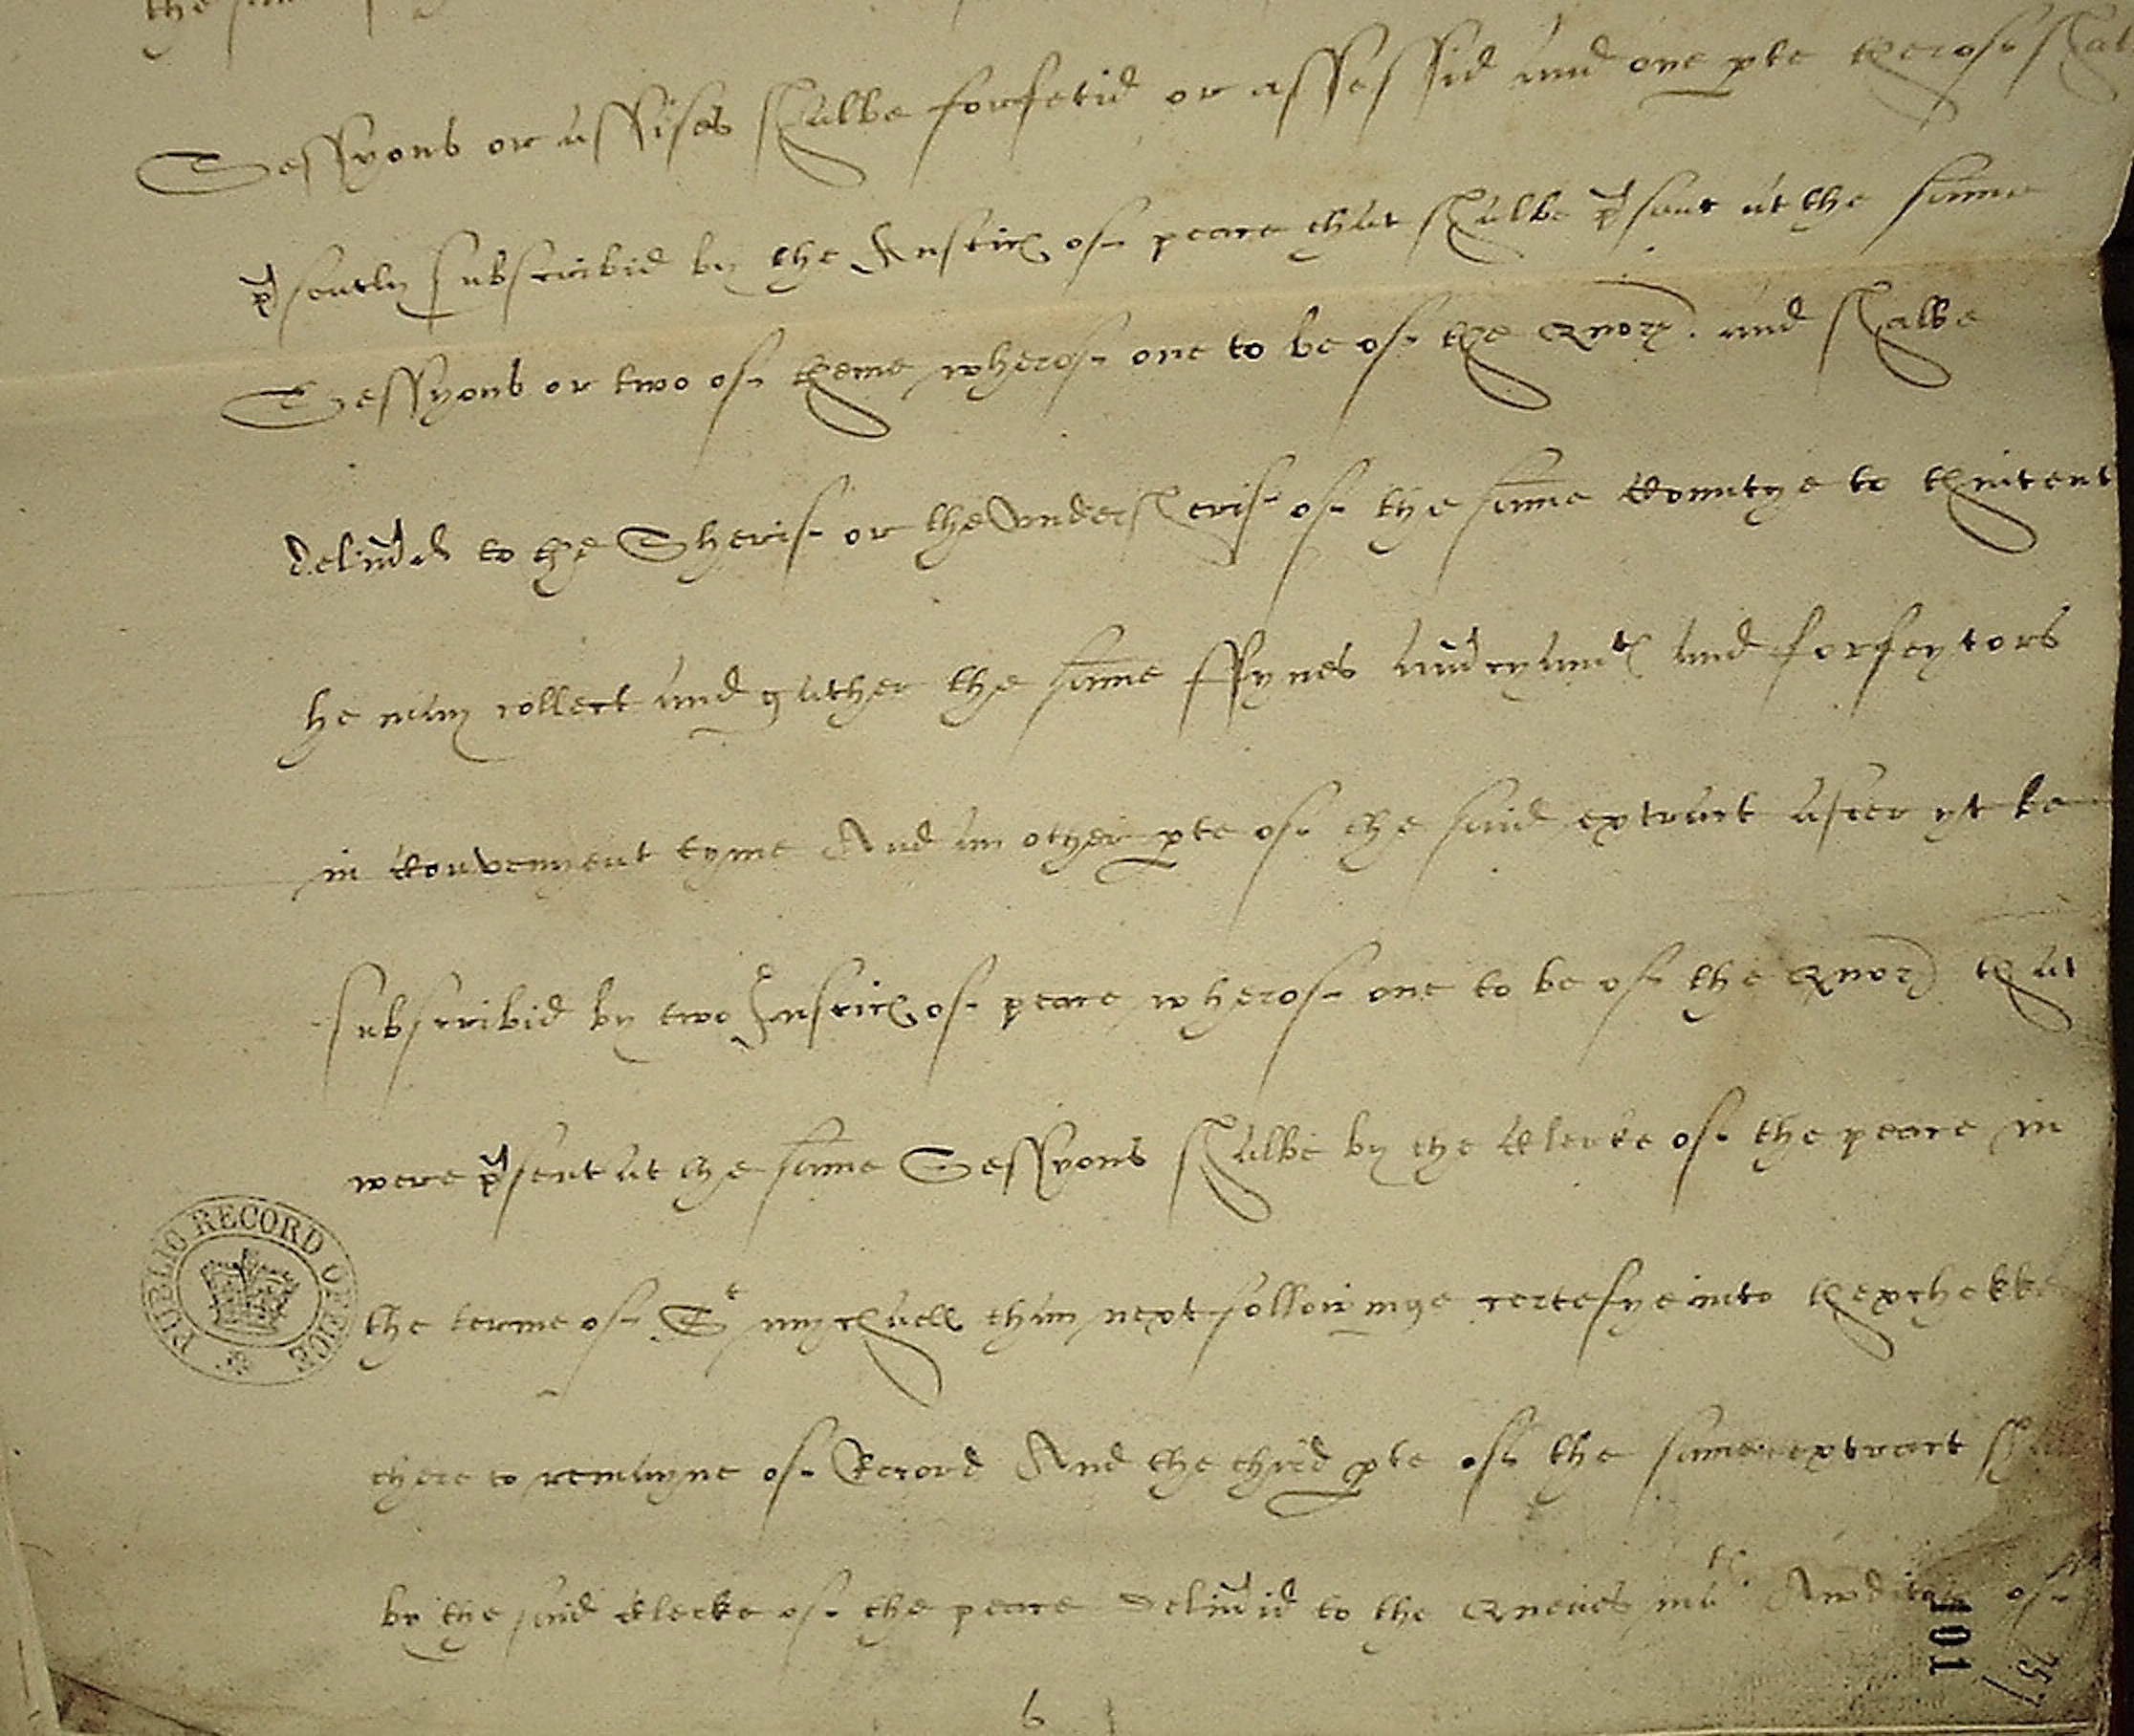 the
Sessyons or assises shalbe forfetid or assessid and one pte therof shal
psently subscribid by the Justic of peace that shalbe psent at the same
Sessyons or two of theme wherof one to be of the Quor. and shalbe
delivded to the Sherif or the Undersherif of the same Countye to thintent
he may collect and gather the same ffynes amrcyamts and forfeytors
in Convenyent tyme And an other pte of the said extract after yt be
subscribid by two Justic of peace wherof one to be of the Quor that
were psent at the same Sessyons shalbe by the Clerke of the peace in
the terme of St mychaell than next followinge certefye into thexchekke
there to remayne of Record And the thrid pte of the same extract sh
by the said Clerke of the peace delivdid to the Quenes mats Auditor of
6
PUBLIC RECORD OFFICE
101
757